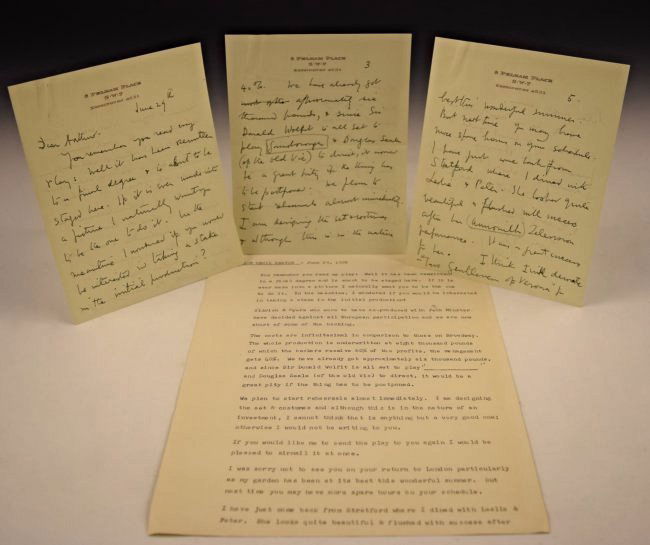 8 PELHAM PLACE
S·W·7
KENSINGTON 4621
June 29th
Dear Arthur.
You remember you read my
play: Well it has been rewritten
to a final degree & is about to be
staged here. If it is ever made into
a picture I naturally want you
to be the one to do it. In the
meantime I wondered if you would
be interested in taking a stake
in the initial production?
8 PELHAM PLACE
S·W·7
KENSINGTON 4621
3
40%. We have already got
approximately six
thousand pounds, & since Sir
Donald Wolfit is all set to
play & Douglas Seale
(of the old Vic) to direct, it would
be a great pity if the thing has
to be postponed. We plan to
start rehearsals almost immediately.
I am designing the set & costumes
& although this is in the nature
8 PELHAM PLACE
S·W·7
KENSINGTON 4621
5.
best this wonderful summer.
But next time you may have
more spare hours on your schedule.
I have just come back from
Stratford where I dined with
Leslie & Peter. She looks quite
beautiful & flushed with success
after her Television
performance. It was a great success
for her. I think I will
"Two Gentlemen of Verona"
- June 29, 1959
You remember you read my play? Well it has been rewritten
to a final degree and is about to be staged here. If it is
ever made into a picture I naturally want you to be the one
to do it. In the meantime, I wondered if you would be interested
in taking a stake in the initial production?
who were to have co-produced with
have decided against all European participation and we are now
short of some of the backing.
The costs are infinitesimal in comparison to those on Broadway.
The whole production is underwritten at eight thousand pounds
of which the backers receive 60% of the profits, the management
gets 40%. We have already got approximately six thousand pounds,
and since Sir Donald Wolfit is all set to play
and Douglas Seale (of the old Vic) to direct, it would be a
great pity if the thing has to be postponed.
We plan to start rehearsals almost immediately. I am designing
the set & costumes and although this is in the nature of an
investment, I cannot think that is anything but a very good one;
otherwise I would not be writing to you.
If you would like me to send the play to you again I would be
pleased to airmail it at once.
I was sorry not to see you on your return to London particularly
as my garden has been at its best this wonderful summer. But
next time you may have more spare hours on your schedule.
I have just come back from Stratford where I dined with Leslie &
Peter. She looks quite beautiful & flushed with success after